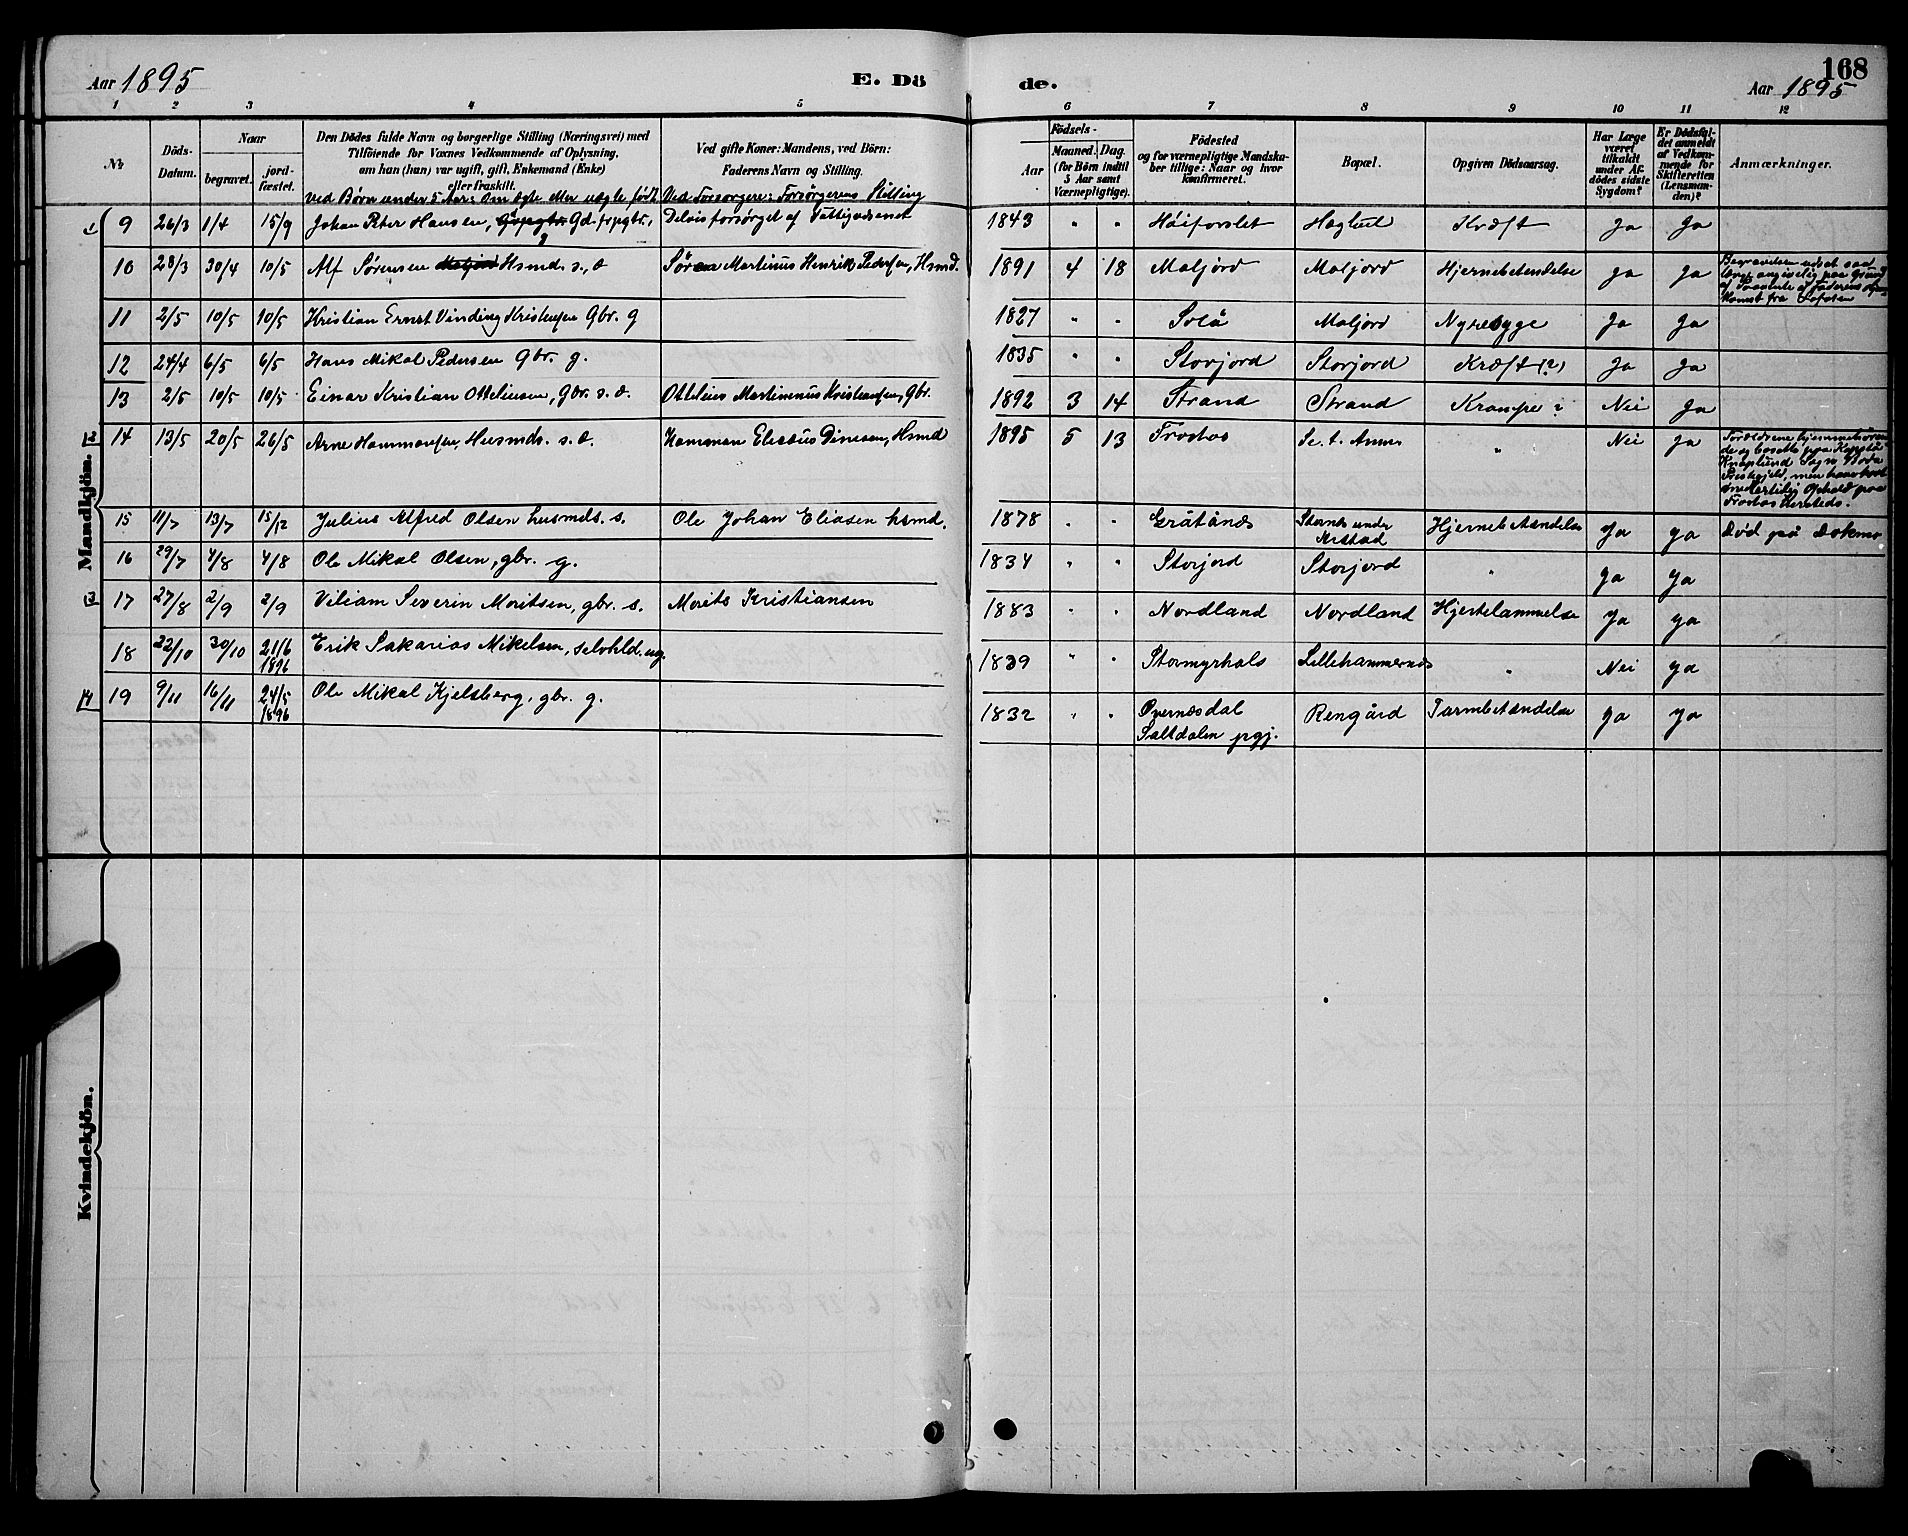 Aar 1895 E. Dö de. Aar 1895 168
1 2 3 4 5 6 7 8 9 10 11 12
No
Döds-Datum.
Naar
begravet.
jord-fæstet.
Den Dödes fulde Navn og borgerlige Stilling (Næringsvei) med
Tilföiende for Voxnes Vedkommende af Oplysning,
om han (hun) var ugift, gift, Enkemand (Enke)
eller fraskilt.
ved Børn under 5 Aar: Om ægte eller uægte født
Ved gifte Koner: Mandens, ved Börn:
Faderens Navn og Stilling.
Ved Forsørgere: Forsørgerens Stilling
Födsels-
Aar
Maaned. Dag.
(for Börn indtil
5 Aar samt
Værnepligtige).
Födested
og for værnepligtige Mandska-
ber tillige: Naar og hvor
konfirmeret.
Bopæl.
Opgiven Dödsaarsag.
Har Læge
været
tilkaldt
under Af-
dödes sidste
Sygdom?
Er Dödsfal-
det anmeldt
af Vedkom-
mende for
Skifteretten
(Lensman-
den)?
Anmærkninger.
Mandkjön.
1 9 26/3 1/4 15/9 Johan Peter Hansen, Gd. fpgtr., Delvis forsørget af Fattigvæsenet 1843 " " Høiforslet Høglud Kræft Ja Ja
g
10 28/3 30/4 10/5 Alf Sørensen Hsmds. s., æ Søren Martinus Henrik Pedersen, Hsmd. 1891 4 18 Maljord Maljord Hjernebetændelse Ja Ja Begravelsen udsat saa
længe angivelig paa Grund
af Faderens
komst fra Lofoten
11 2/5 10/5 10/5 Kristian Ernst Vinding Kristensen Gbr. g 1827 " " Solå Maljord Nyresyge Ja Ja
12 24/4 6/5 6/5 Hans Mikal Pedersen Gbr. g. 1835 " " Storjord Storjord Kræft (?) Ja Ja
13 2/5 10/5 10/5 Einar Kristian Otteliusen, Gbr. s. æ. Ottelius Martinmus Kristensen, Gbr. 1892 3 14 Strand Strand Krampe ? Nei Ja
2 14 13/5 20/5 26/5 Arne Hammonsen, Husmds. s. æ. Hammon Eliseus Dinesen, Hsmd 1895 5 13 Frostos Se. t. Anm. " Nei Ja Forældrene hjemmehøren-
de og bosatte paa
Knaplund Sogn Bodø
Prestegjeld, men
midlertidig Ophold paa
Frostos hersteds.
15 11/7 13/7 15/12 Julius Alfred Olsen husmds. s. Ole Johan Eliasen hsmd. 1878 " " Gråtånes Stornes under
Arstad Hjernebetændelse Ja Ja Død på Dokmo
16 29/7 4/8 4/8 Ole Mikal Olsen, gbr. g. 1834 " " Storjord Storjord " Ja Ja
3 17 27/8 2/9 2/9 Viliam Severin Moritsen, gbr. s. Morits Kristiansen 1883 " " Nordland Nordland Hjertelammelse Ja Ja
18 22/10 30/10 21/6
1896 Erik Sakarias Mikelsen, selvhld. ug. 1839 " " Stormyrhals Lillehammernes " Nei Ja
4 19 9/11 16/11 24/5
1896 Ole Mikal Kjelsberg, gbr. g. 1832 " " Overnesdal
Saltdalen pgj. Rengård Tarmbetændelse Ja Ja
Kvindekjön.